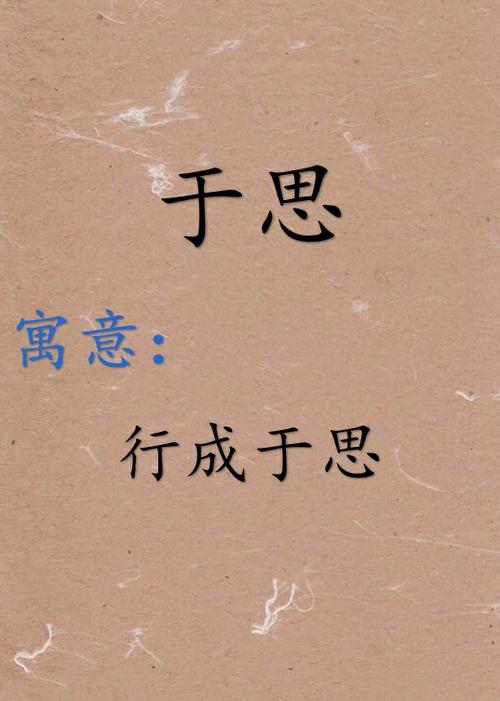 于思
寓意：
行成于思